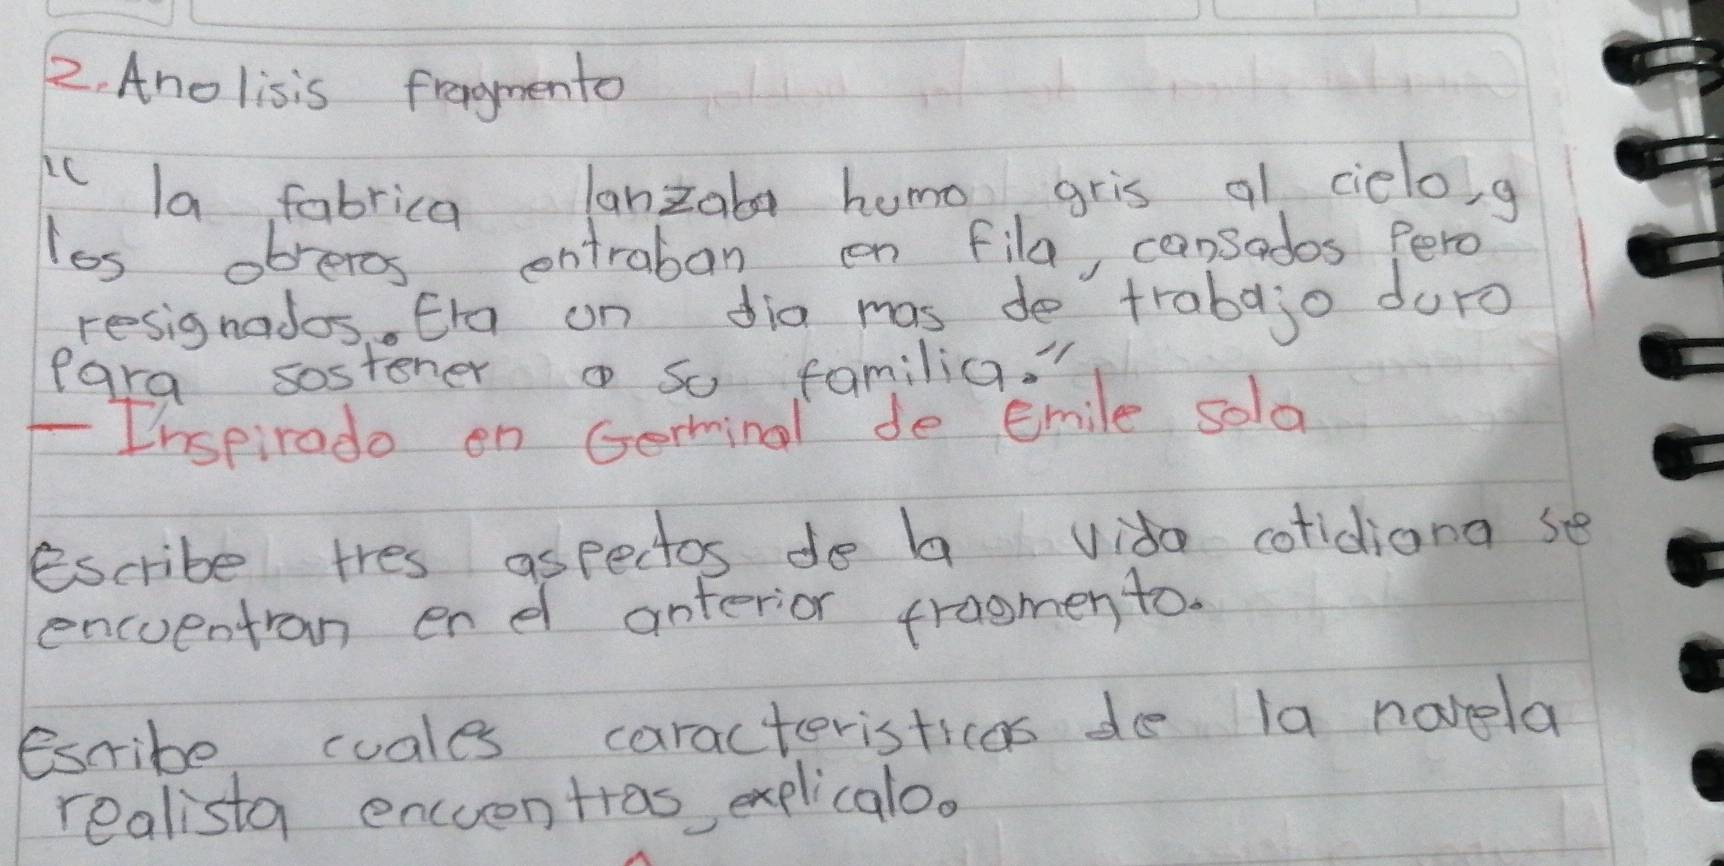 2. Analisis fragmento
"la fabrica lanzaba humo gris al cielo, y
los obreros entraban en fila, cansados Pero
resignados. Era un dia mas de trabajo duro
Para sostener a su familia."
- Inspirado en Germinal de Emile sola
Escribe tres aspectos de la vida cotidiana se
encuentran en el anterior fragmento.
Escribe cuales caracteristicas de la novela
realista encuentras, explicalo.